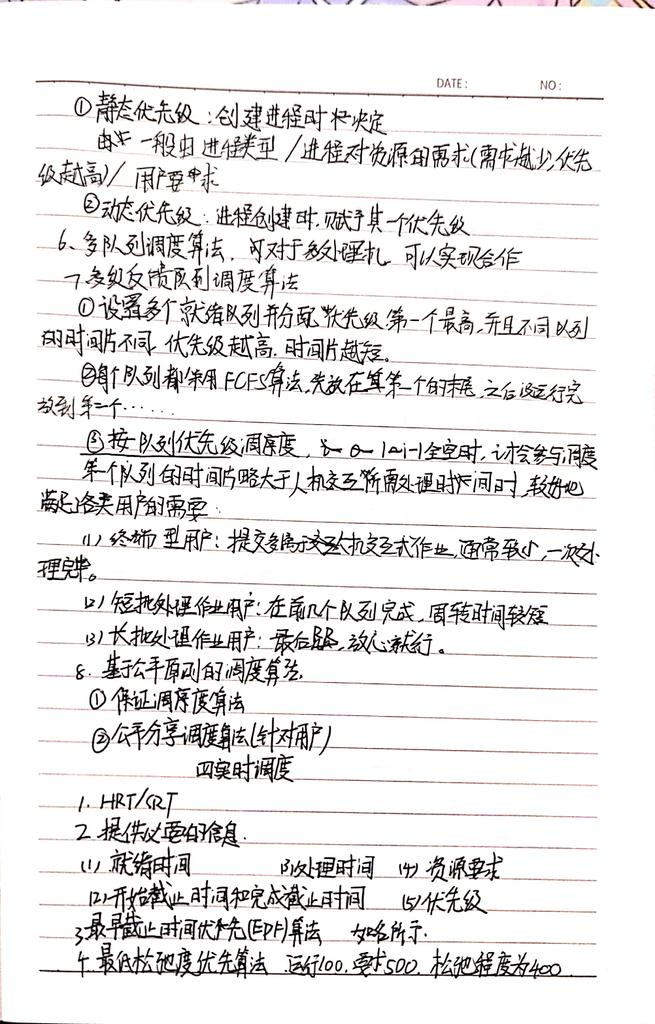 DATE: NO:
① 静态优先级：创建进程时决定
一般由进程类型/进程对资源的需求(需求越少,优先
级越高)/用户要求
②动态优先级：进程创建时,赋予其一个优先级
6、多队列调度算法，可对于多处理机,可以实现合作
7.多级反馈队列调度算法
① 设置多个就绪队列并分配优先级,第一个最高,并且不同队列
的时间片不同,优先级越高,时间片越短。
②每个队列都采用FCFS算法,先放在第一个的末尾,之后没运行完
放到第二个……
③按队列优先级调度,1~i-1全空时,i才会参与调度
第一个队列的时间片略大于人机交互所需处理时间时,较好地
满足各类用户的需要
(1) 终端型用户：提交多属于交互式作业,通常较小,一次处
理完毕。
(2) 短批处理作业用户：在前几个队列完成,周转时间较短
(3) 长批处理作业用户：最后,放心就行。
8. 基于公平原则的调度算法
① 保证调度算法
②公平分享调度算法(针对用户)
四实时调度
1. HRT/SRT
2. 提供必要的信息.
(1) 就绪时间 (3)处理时间 (4) 资源要求
(2)开始截止时间和完成截止时间 (5)优先级
3.最早截止时间优先(EDF)算法 如名所示.
4.最低松弛度优先算法 运行100,要求500,松弛程度为400